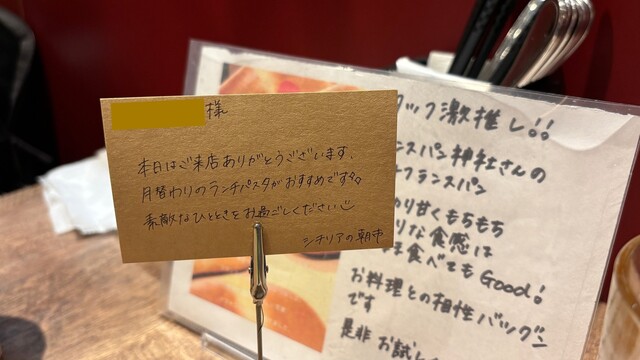 様
本日はご来店ありがとうございます、
月替わりのランチパスタがおすすめです
素敵なひとときをお過ごしください
シチリアの朝市
タッフ激推し!!
ンスパン神社さんの
フランスパン
り甘くもちもち
りな食感は
ま食べてもGood!
お料理との相性バツグン
です
是非お試し